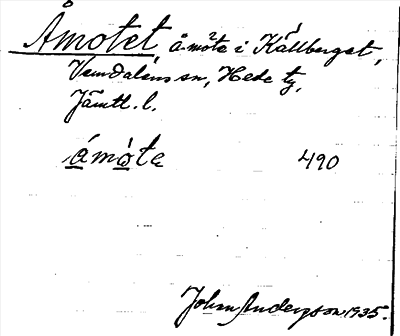 Åmotet, åmote i Källberget,
Vemdalens sn, Hede tg,
Jämtl. l.
åmòte 490
John Anderson 1935.